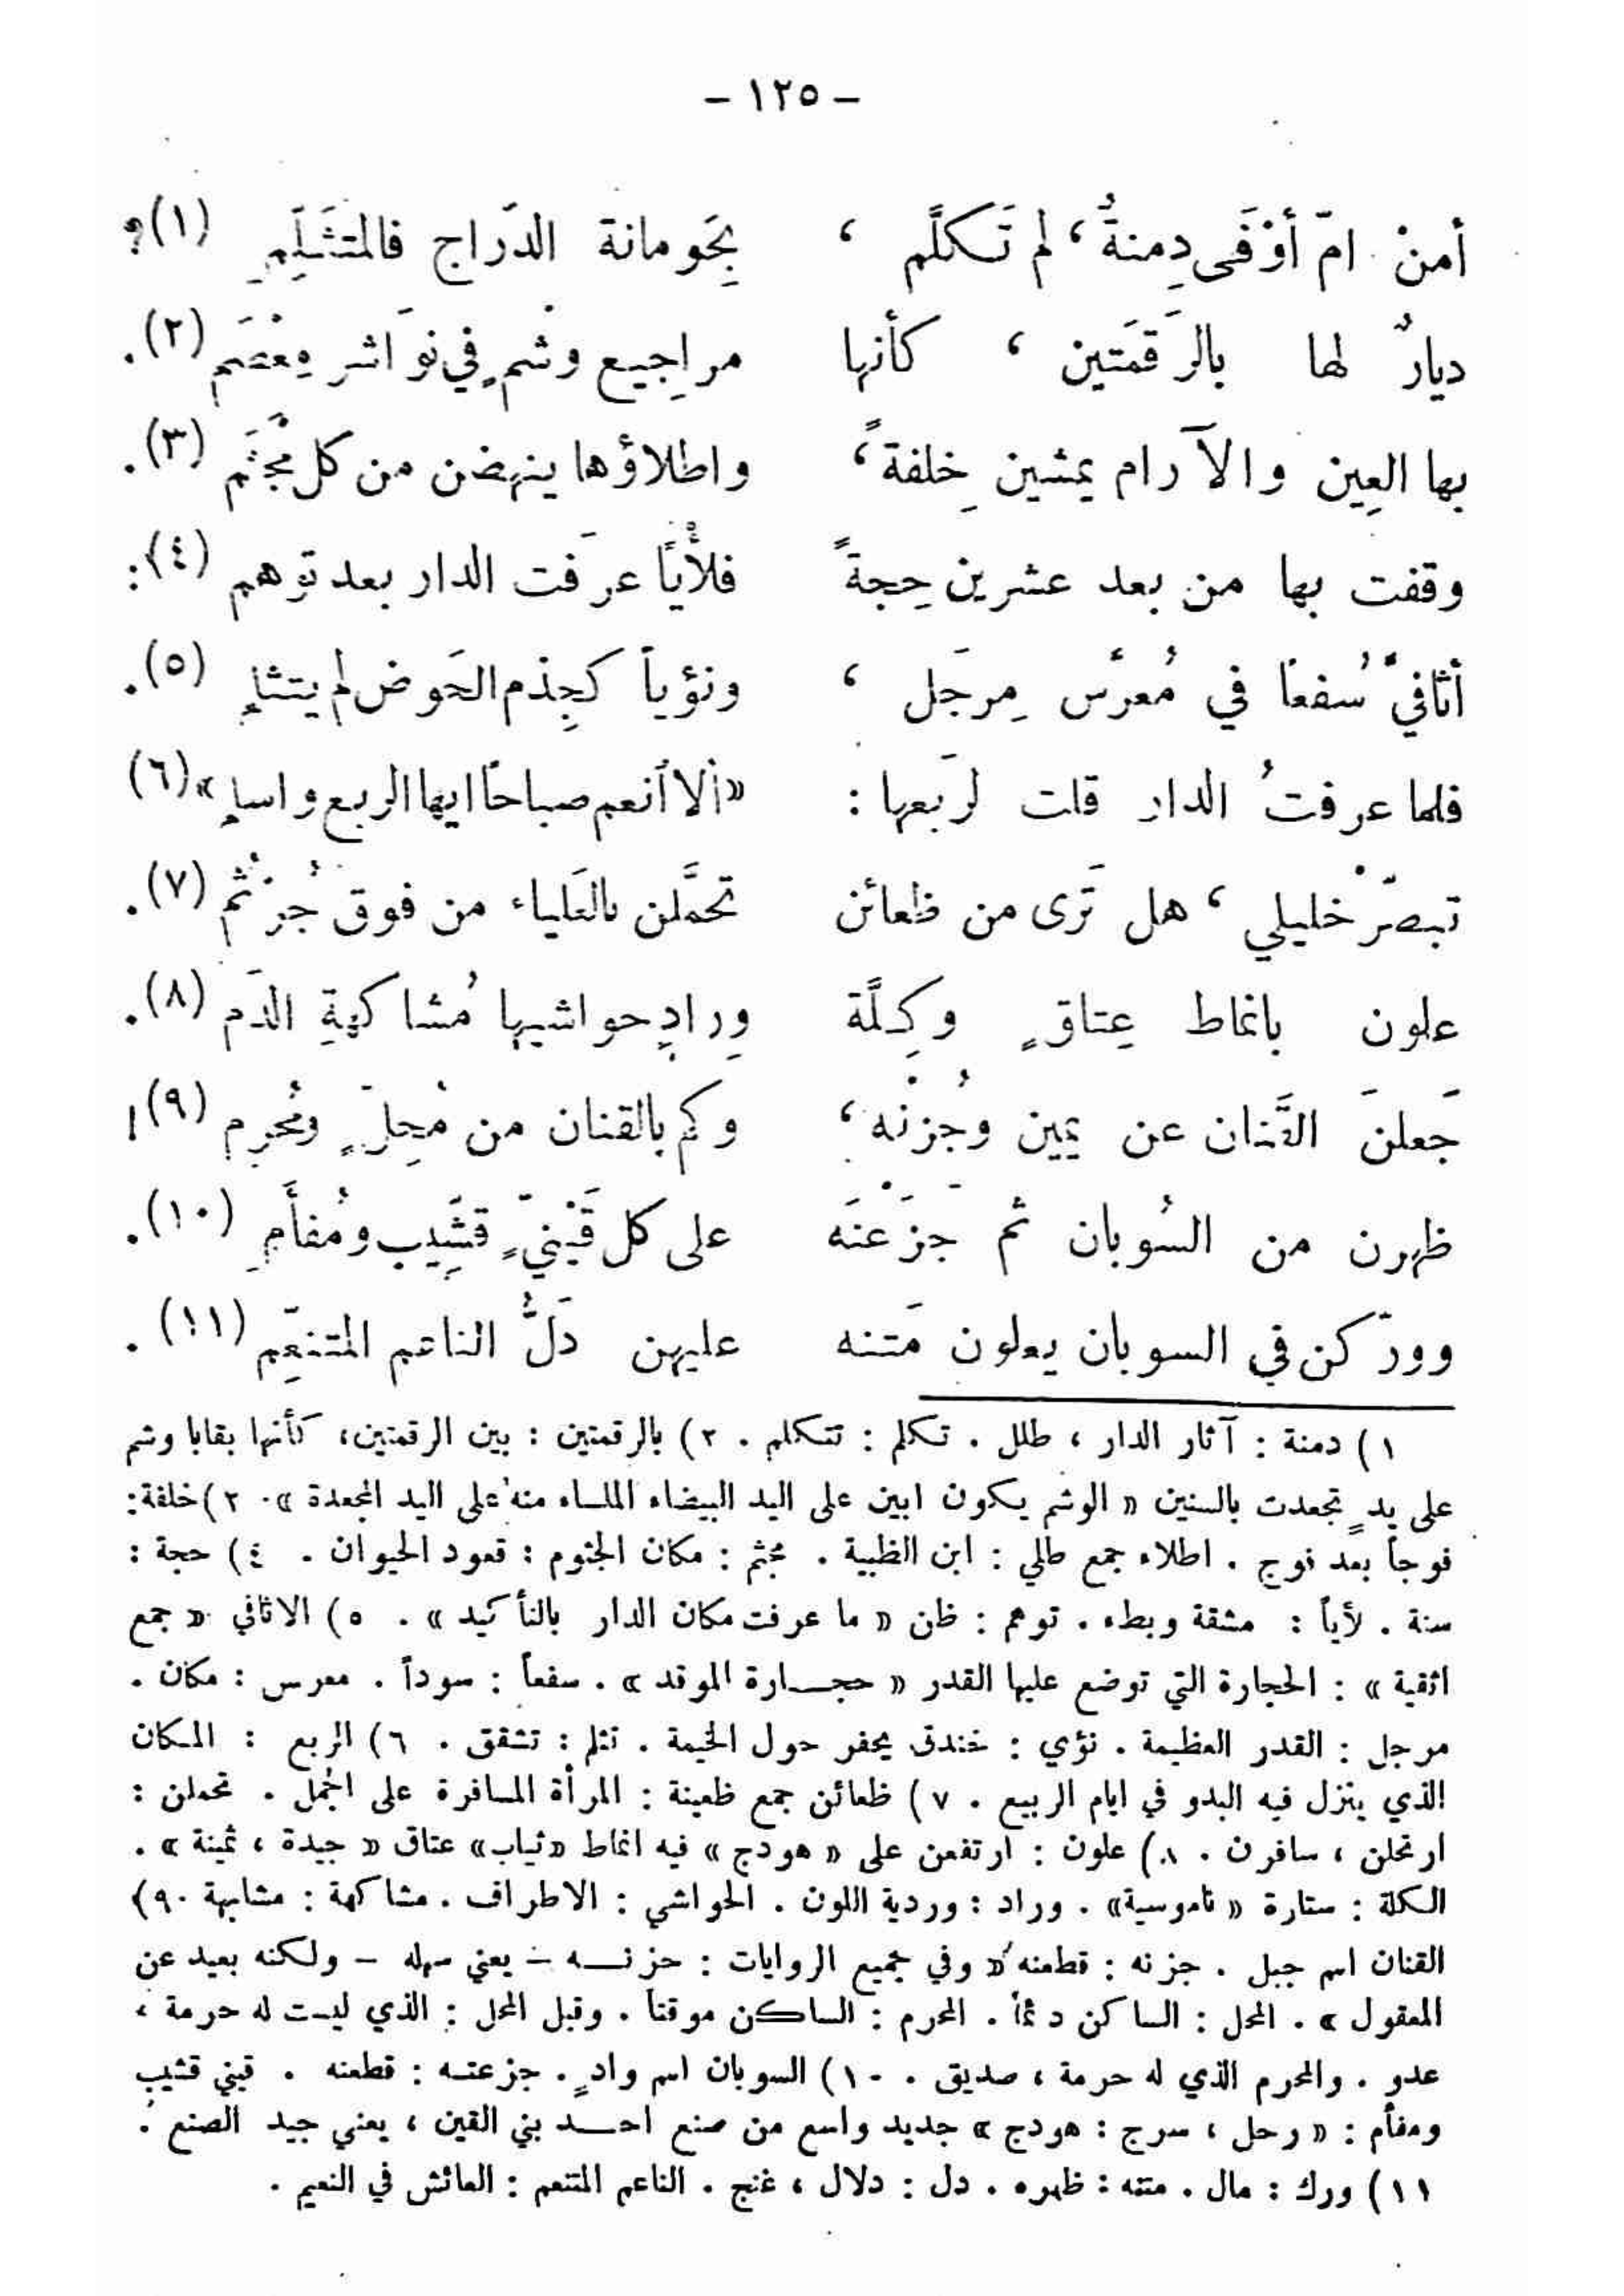 - ١٢٥ -
أمنْ امّ أوْفَى دِمنةٌ ، لم تَكلَّم ، بِحَومانة الدّراج فالمتَثَلِّمِ (١)؟
ديارٌ لها بالرَقمَتين ، كأنها مراجِيع وشْمٍ في نوَاشر مِعْصَم (٢).
بها العِين والآرام يمشين خِلفةً ، واطلاؤها ينهضن من كل مُجثَم (٣).
وقفت بها من بعد عشرين حِجةً فلأْيًا عرَفت الدار بعد توَهم (٤):
أثافيَّ سُفعًا في مُعرَّس مِرجَل ، ونؤياً كجِذم الحَوض لم يتثلمِ (٥).
فلما عرفتُ الدار قلت لرَبعها : «ألا أنعم صباحًا ايها الربع واسلمِ» (٦)
تبصّرْ خليلي ، هل تَرى من ظعائن تحمَّلن بالعَلياء من فوق جُرْثُم (٧).
علون بانماط عِتاقٍ وكِلَّة وِرادٍ حواشيها مُشاكهةِ الدَم (٨).
جَعلنَ القَنان عن يمين وجُزنْه ، وكم بالقنان من مُحِلٍّ ومُحرِم (٩)!
ظهرن من السُوبان ثم جزَعْنَه على كل قَيْنيٍّ قشَيِب ومُفأَمِ (١٠).
وورّكن في السوبان يعلون مَتنه عليهن دَلُّ الناعم المتنعِّم (١١).
١) دمنة : آثار الدار ، طلل . تكلم : تتكلم . ٢) بالرقمتين : بين الرقمتين، كأنها بقايا وشم
على يدٍ تجعدت بالسنين « الوشم يكون ابين على اليد البيضاء الملساء منه على اليد المجعدة ». ٣) خلفة:
فوجاً بعد فوج . اطلاء جمع طلي : ابن الظبية . مجثم : مكان الجثوم : قعود الحيوان . ٤) حجة :
سنة . لأياً : مشقة وبطء . توهم : ظن « ما عرفت مكان الدار بالتأكيد » . ٥) الاثافي « جمع
اثفية » : الحجارة التي توضع عليها القدر « حجـارة الموقد » . سفعاً : سوداً . معرس : مكان .
مرجل : القدر العظيمة . نؤي : خندق يحفر حول الخيمة . تثلم : تشقق . ٦) الربع : المكان
الذي ينزل فيه البدو في ايام الربيع . ٧) ظعائن جمع ظعينة : المرأة المسافرة على الجمل . تحملن :
ارتحلن ، سافرن . ٨) علون : ارتفعن على « هودج » فيه انماط «ثياب» عتاق « جيدة ، ثمينة » .
الكلة : ستارة « ناموسية» . وراد : وردية اللون . الحواشي : الاطراف . مشاكهة : مشابهة .٩)
القنان اسم جبل . جزنه : قطعنه « وفي جميع الروايات : حزنـه - يعني سهله - ولكنه بعيد عن
المعقول » . المحل : الساكن دئماً . المحرم : الساكن موقتاً . وقيل المحل : الذي ليست له حرمة ،
عدو . والمحرم الذي له حرمة ، صديق . ١٠) السوبان اسم وادٍ . جزعنـه : قطعنه . قيني قشيب
ومفأم : « رحل ، سرج : هودج » جديد واسع من صنع احـد بني القين ، يعني جيد الصنع .
١١) ورك : مال . متنه : ظهره . دل : دلال ، غنج . الناعم المتنعم : العائش في النعيم .